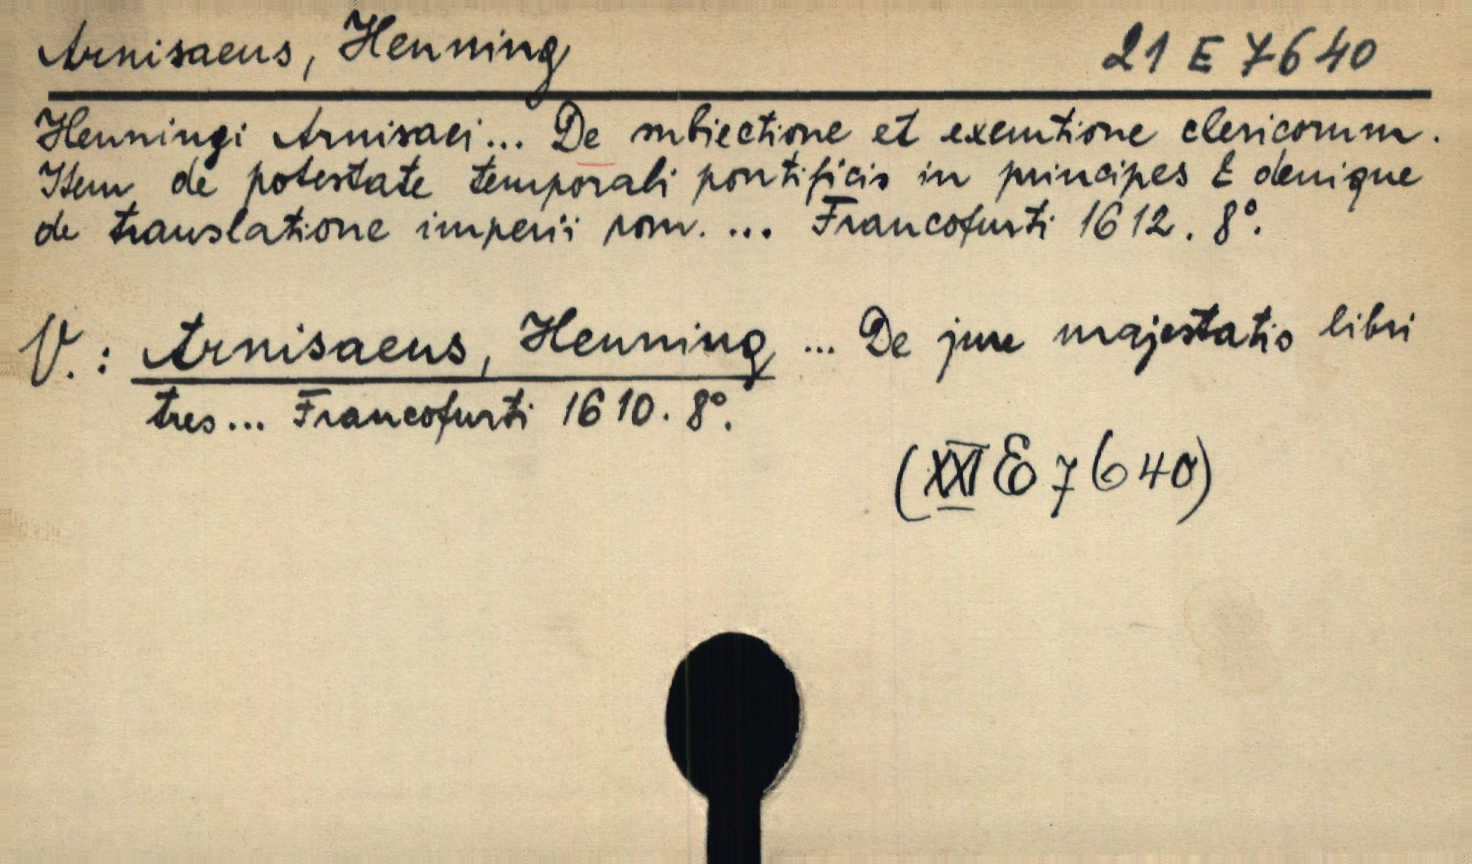 Arnisaeus, Henning 21 E 7640
Henningi Arnisaei... De subiectione et exemtione clericorum.
Item de potestate temporali pontificis in principes & denique
de translatione imperii rom. ... Francofurti 1612. 8°.
V.: Arnisaeus, Henning ... De jure majestatis libri
tres... Francofurti 1610. 8°.
(XXI E 7640)